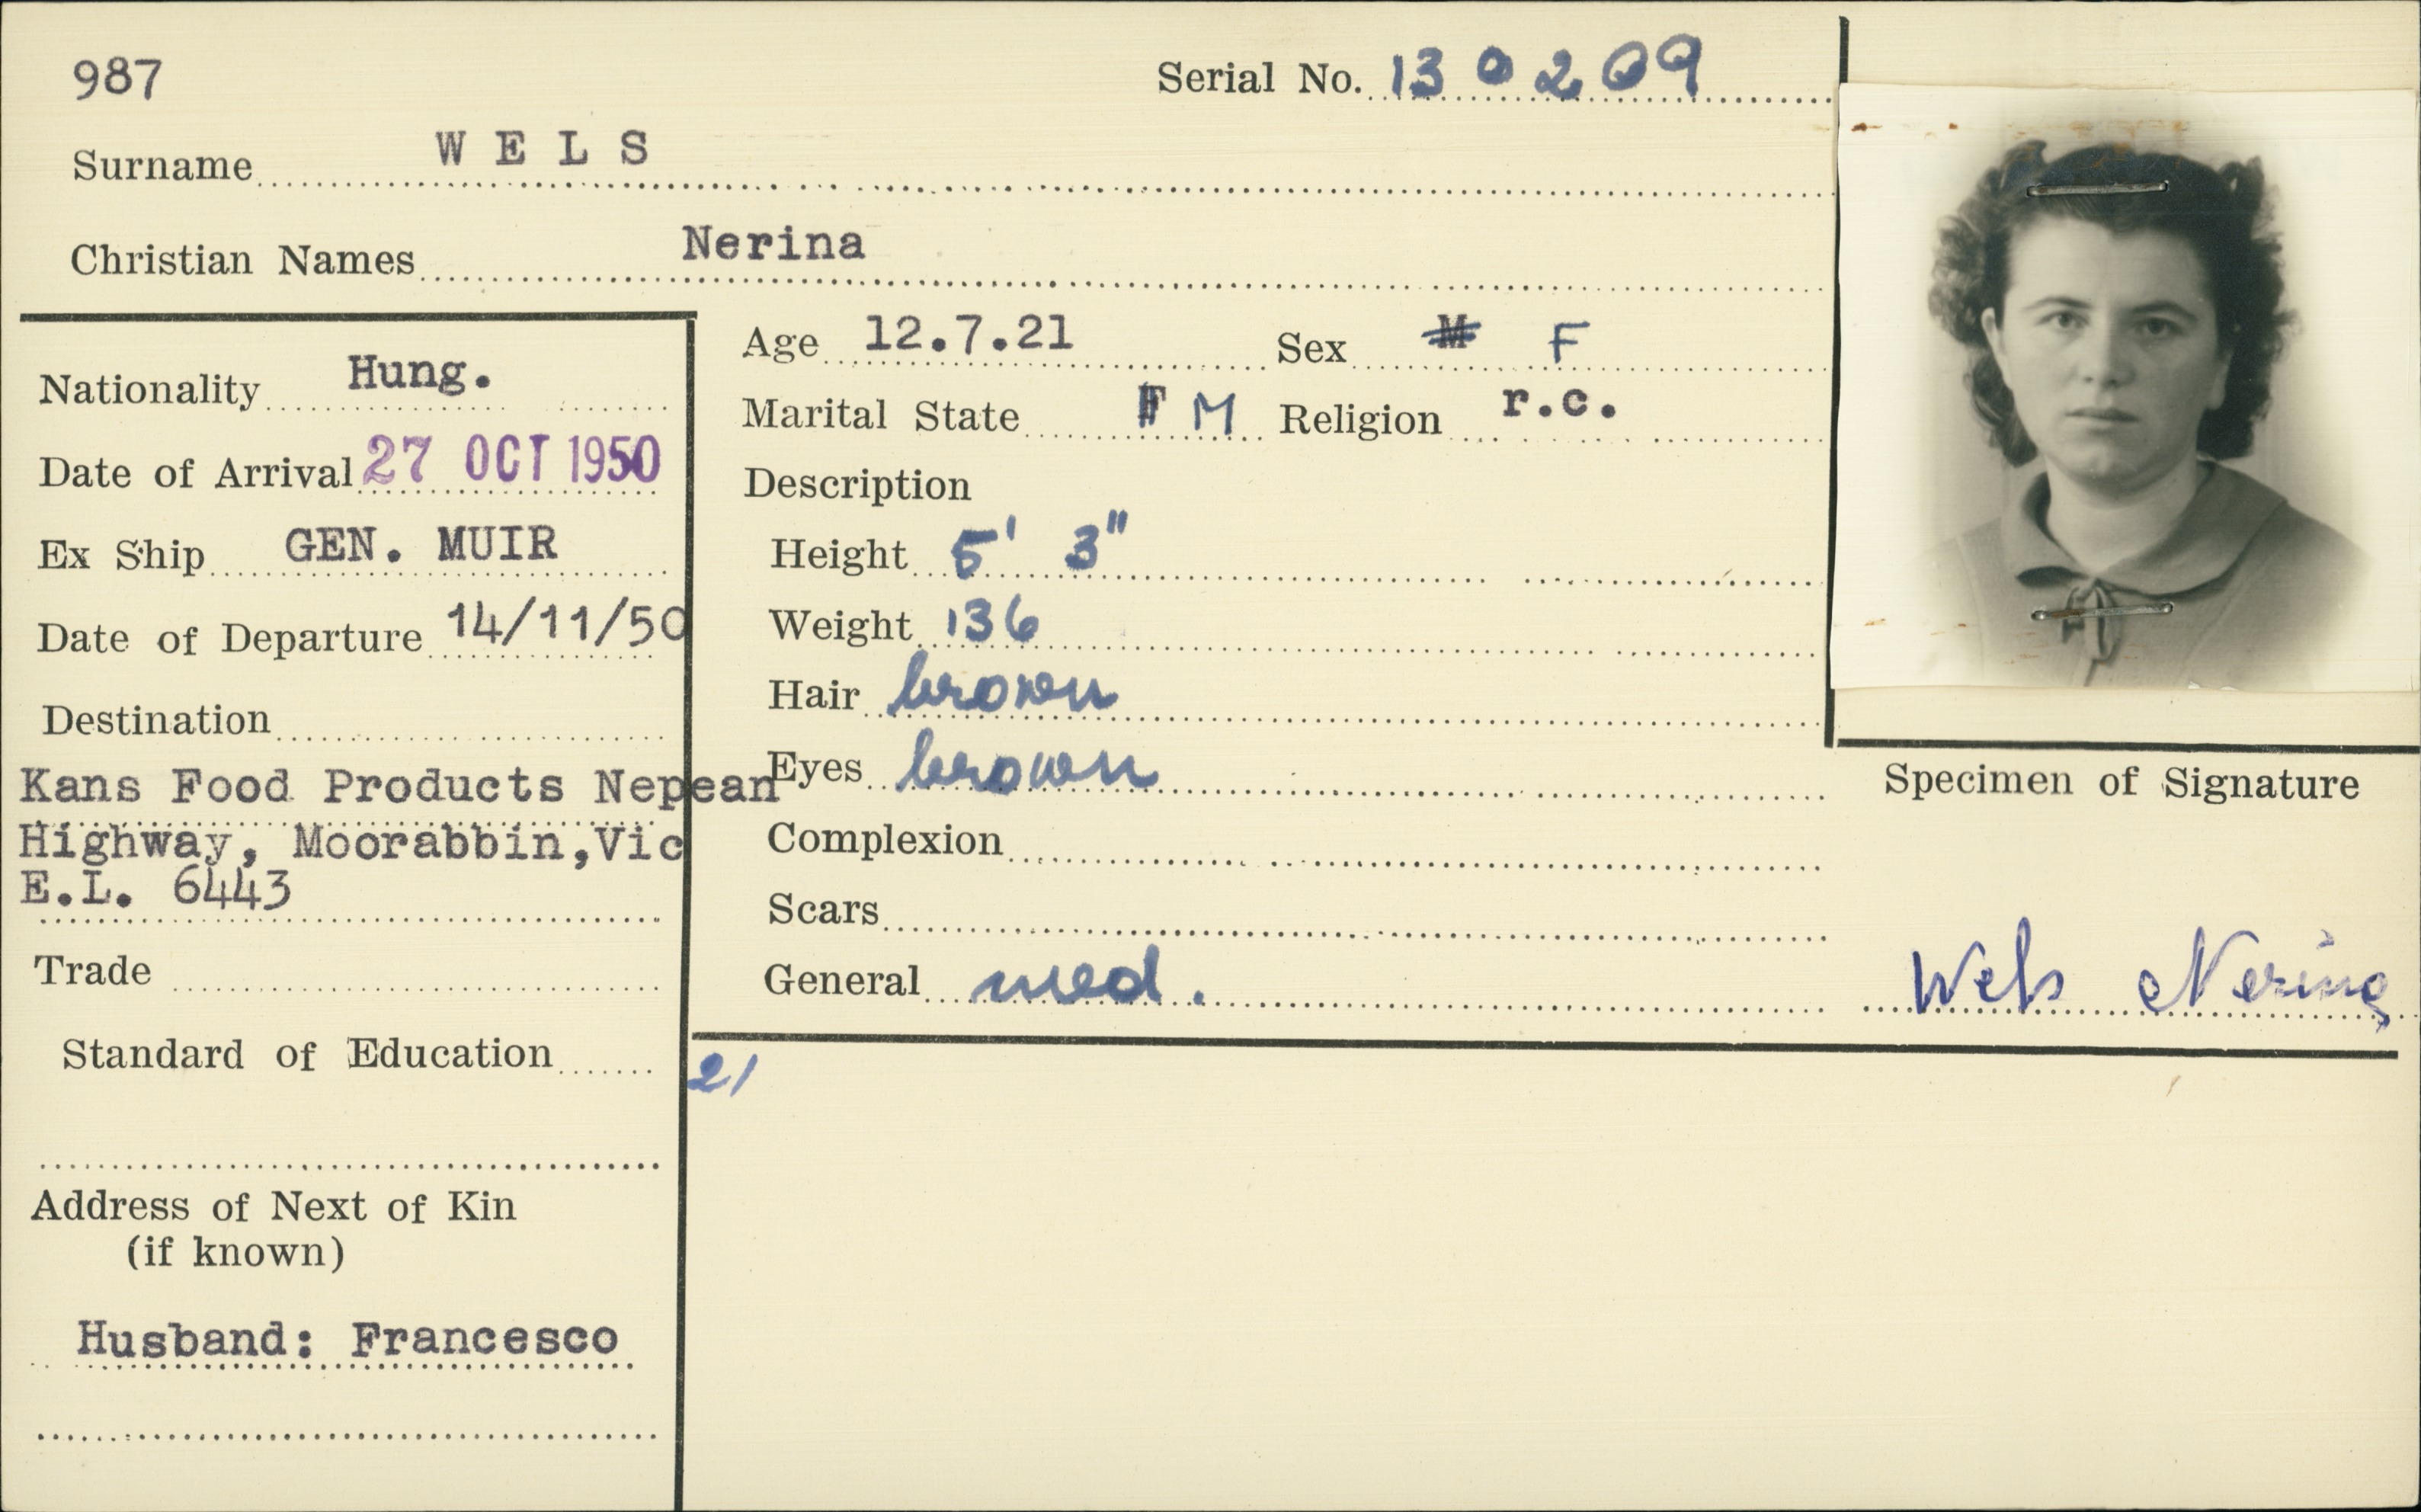 987
Serial No. 130209
Surname WELS
Christian Names Nerina
Nationality Hung.
Date of Arrival 27 OCT 1950
Ex Ship GEN. MUIR
Date of Departure 14/11/50
Destination
Kans Food Products Nepean
Highway, Moorabbin,Vic
E.L. 6443
Trade
Standard of Education
Address of Next of Kin
(if known)
Husband: Francesco
Age 12.7.21 Sex M F
Marital State F M Religion r.c.
Description
Height 5' 3"
Weight 136
Hair brown
Eyes brown
Complexion
Scars
General med.
21
Specimen of Signature
Wels Nerina